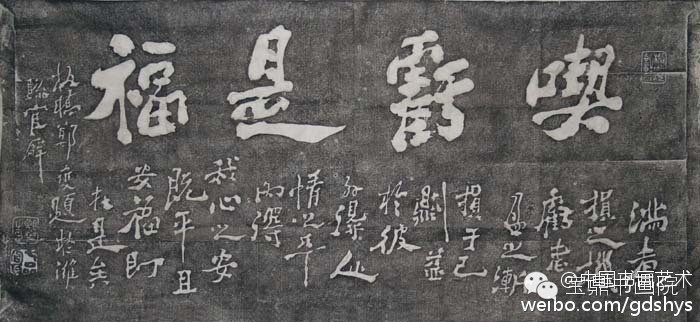 喫虧是福
滿者
損之機
虧者
盈之漸
損于己
則益
於彼
外得人
情之平
內得
我心之安
既平且
安福即
在是矣
板橋鄭燮題於濰
縣官廨
@中国书画艺术
宝鼎书画院
weibo.com/gdshys